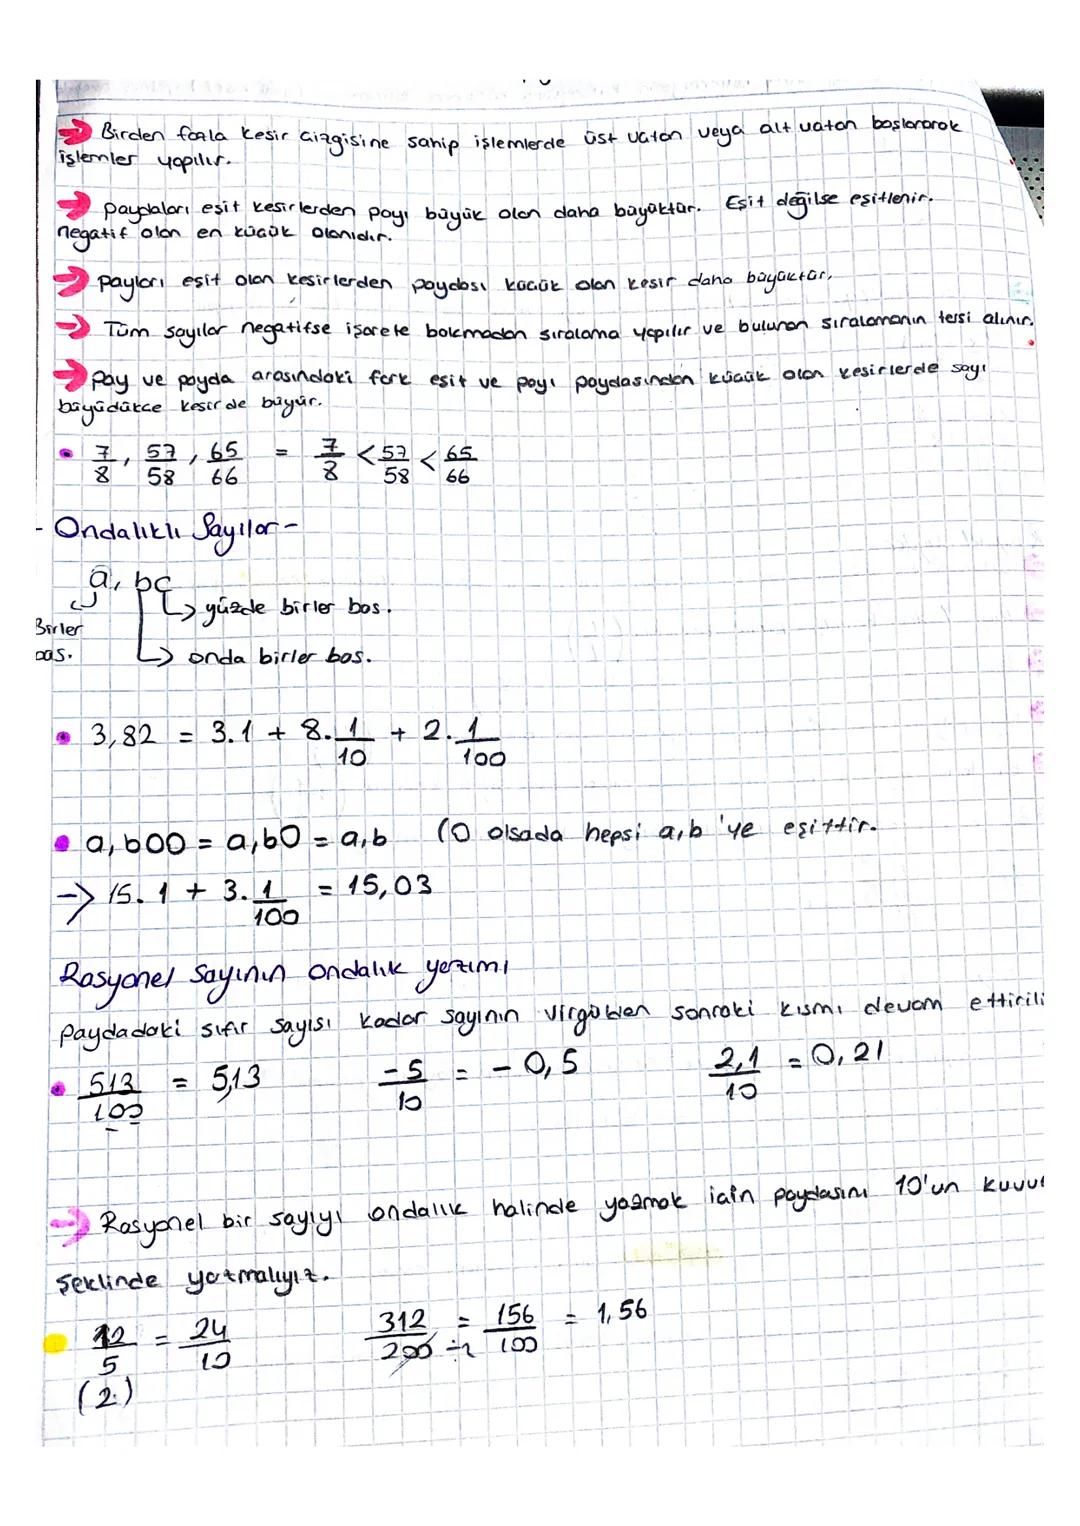 Birden fazla kesir çizgisine sahip işlemlerde üst uctan veya alt uctan başlanarak
işlemler yapılır.
paydaları eşit kesirlerden payı büyük olan daha büyüktür. Eşit değilse eşitlenir.
negatif olan en küçük olanıdır.
payları eşit olan kesirlerden paydası küçük olan kesir daha büyüktür.
Tüm sayılar negatifse işarete bakmadan sıralama yapılır ve bulunan sıralamanın tersi alınır.
Pay ve payda arasındaki fark eşit ve payı paydasından küçük olan kesirlerde sayı
büyüdükçe kesir de büyür.
• 7/8, 57/58, 65/66 = 7/8 < 57/58 < 65/66
- Ondalıklı Sayılar -
a, bc
yüzde birler bas.
Birler
bas.
onda birler bas.
• 3,82 = 3.1 + 8.1/10 + 2.1/100
• a,b00 = a,b0 = a,b (0 olsada hepsi a,b 'ye eşittir.
-> 15.1 + 3.1/100 = 15,03
Rasyonel sayının ondalık yazımı
Paydadaki sıfır sayısı kadar sayının virgülden sonraki kısmı devam ettirili
• 513/100 = 5,13 -5/10 = -0,5 2,1/10 = 0,21
Rasyonel bir sayıyı ondalık halinde yazmak için paydasını 10'un kuvve
şeklinde yazmalıyız.
12/5 = 24/10 312/200 ÷2 = 156/100 = 1,56
(2.)